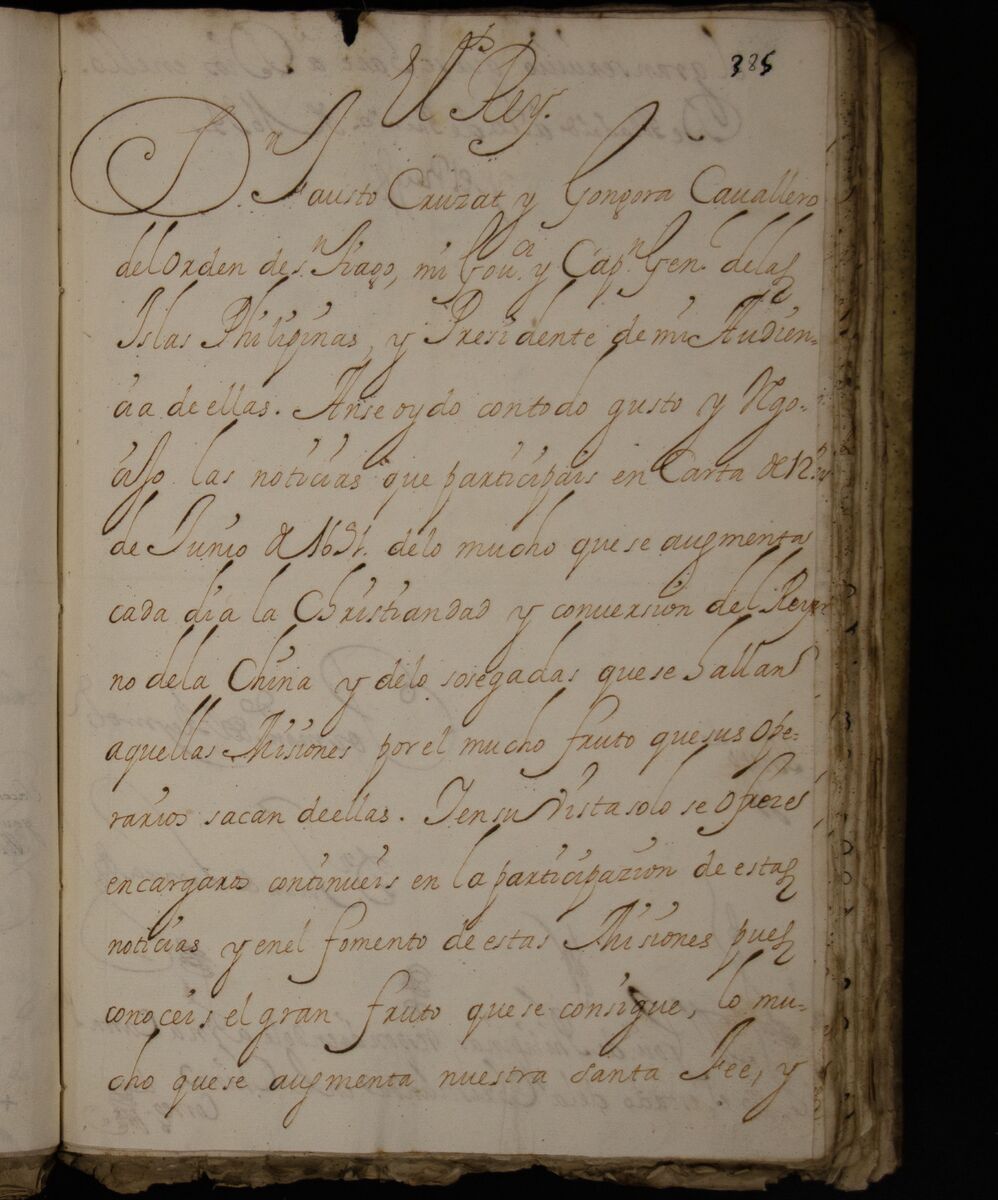 385
El Rey.
Dn Fausto Cruzat y Gongora Cauallero
del Orden de sn Tiago, mi Gouor y Capn Gen. delas
Islas Philipinas, y Presidente de mi Audien-
cia de ellas. Anse oydo contodo gusto y Rgo-
cijo las noticias que participais en Carta de 12.
de Junio de 1691. delo mucho quese augmenta
cada dia la Christiandad y conversion del Rey-
no dela China y delo sosegadas quese hallan
aquellas Misiones por el mucho fruto quesus ope-
rarios sacan deellas. Yensu Vista solo se ofreze
encargaros continueis en la participazion de estas
noticias y enel fomento de estas Misiones pues
conoceis el gran fruto quese consigue, lo mu-
cho quese augmenta nuestra santa Fee, y